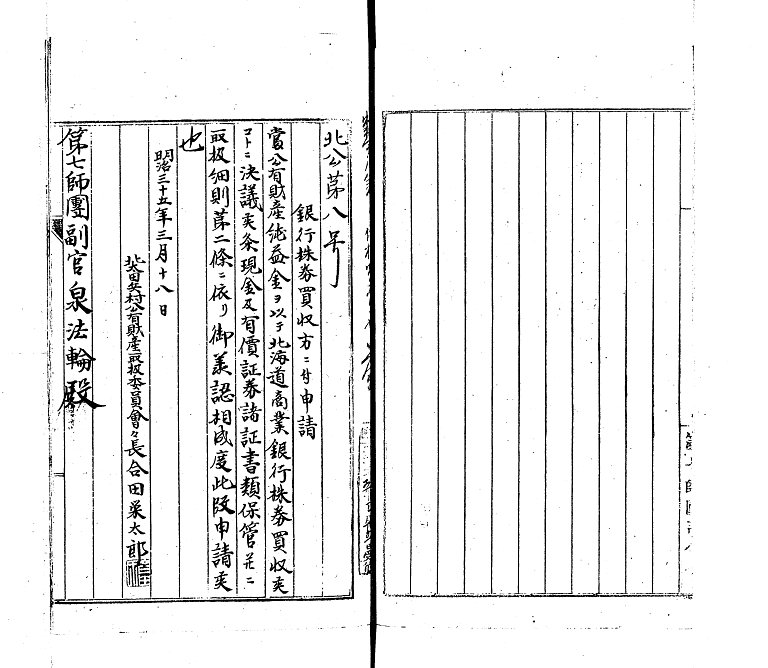 北公第八号
銀行株券買収方ニ付申請
當公有財産純益金ヲ以テ北海道商業銀行株券買収
コトニ決議 条現金及有價証券諸証書類保管並ニ
取扱細則第二條ニ依リ御承認相成度此段申請
也
明治三十五年三月十八日
村公有財産取扱委員會々長合田栄太郎
第七師團副官泉法輪殿